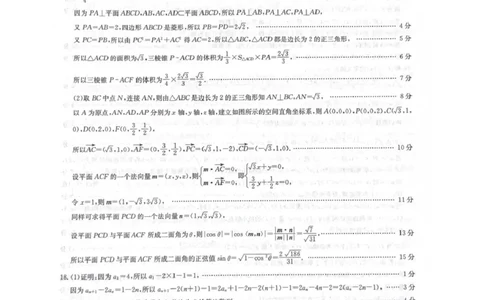 因为 PA⊥平面 ABCD,AB,AC,AD⊂平面 ABCD,所以 PA⊥AB,PA⊥AC,PA⊥AD.
又 PA=AB=2,四边形 ABCD 是菱形,所以 PB=PD=2√2. 4分
又 PC=PB,所以由 PC²=PA²+AC² 得 AC=2,所以△ABC,△ACD 都是边长为2的正三角形. 5分
所以△ACD 的面积为√3,三棱锥 P-ACD 的体积为 1/3×S△ACD×PA=2√3/3, 6分
所以三棱锥 P-ACF 的体积为 3/4×2√3/3=√3/2. 7分
(2)取 BC 中点 N,连接 AN,则由△ABC 是边长为2的正三角形知 AN⊥BC,AN=√3, 8分
以 A 为原点,AN,AD,AP 分别为 x 轴,y 轴,z 轴,建立如图所示的空间直角坐标系,则 A(0,0,0),P(0,0,2),C(√3,1,
0),D(0,2,0),F(0,3/2,1/2),
所以AC=(√3,1,0),AF=(0,3/2,1/2),PC=(√3,1,-2),CD=(-√3,1,0). 10分
设平面 ACF 的一个法向量 m=(x,y,z),则{m·AC=0, m·AF=0, 即{√3x+y=0, 3/2y+1/2z=0,
令 x=1,则 m=(1,-√3,3√3). 11分
同样可求得平面 PCD 的一个法向量 n=(1,√3,√3),
设平面 PCD 与平面 ACF 所成二面角为 θ,则|cos θ|=|cos⟨m,n⟩|=|m·n|/|m||n|=√7/√31, 13分
所以平面 PCD 与平面 ACF 所成二面角的正弦值 sin θ=√1-cos²θ=2√186/31. 15分
(1)证明:因为 a₁=4,所以 a₁-2×1-1=1. 1分
因为 aₙ₊₁-2aₙ=1-2n,所以 aₙ₊₁-2(n+1)-1=2aₙ+1-2n-2(n+1)-1=2aₙ-4n-2=2(aₙ-2n-1), 3分